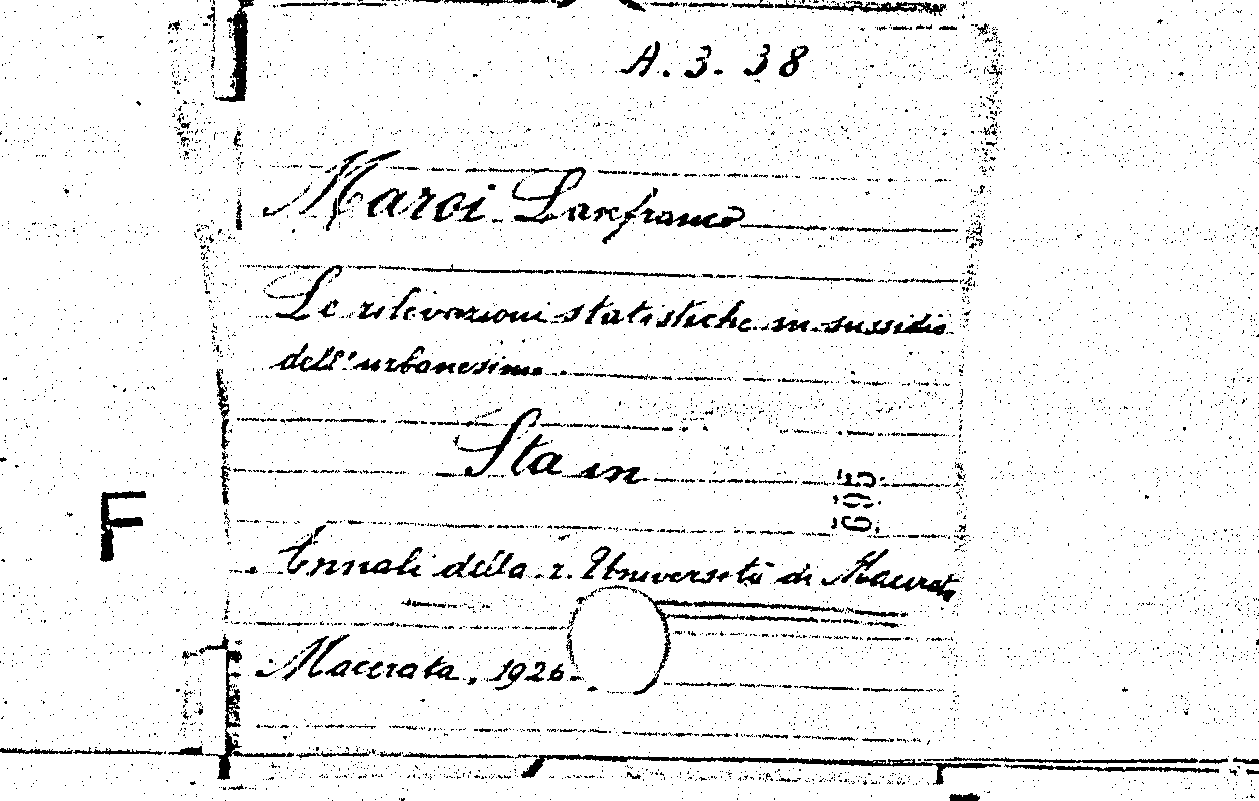 A. 3. 38
Maroi Lanfranco
Le rilevazioni statistiche in sussidio
dell'urbanesimo.
Sta in
695
F
Annali della r. Università di Macerata
Macerata, 1926.